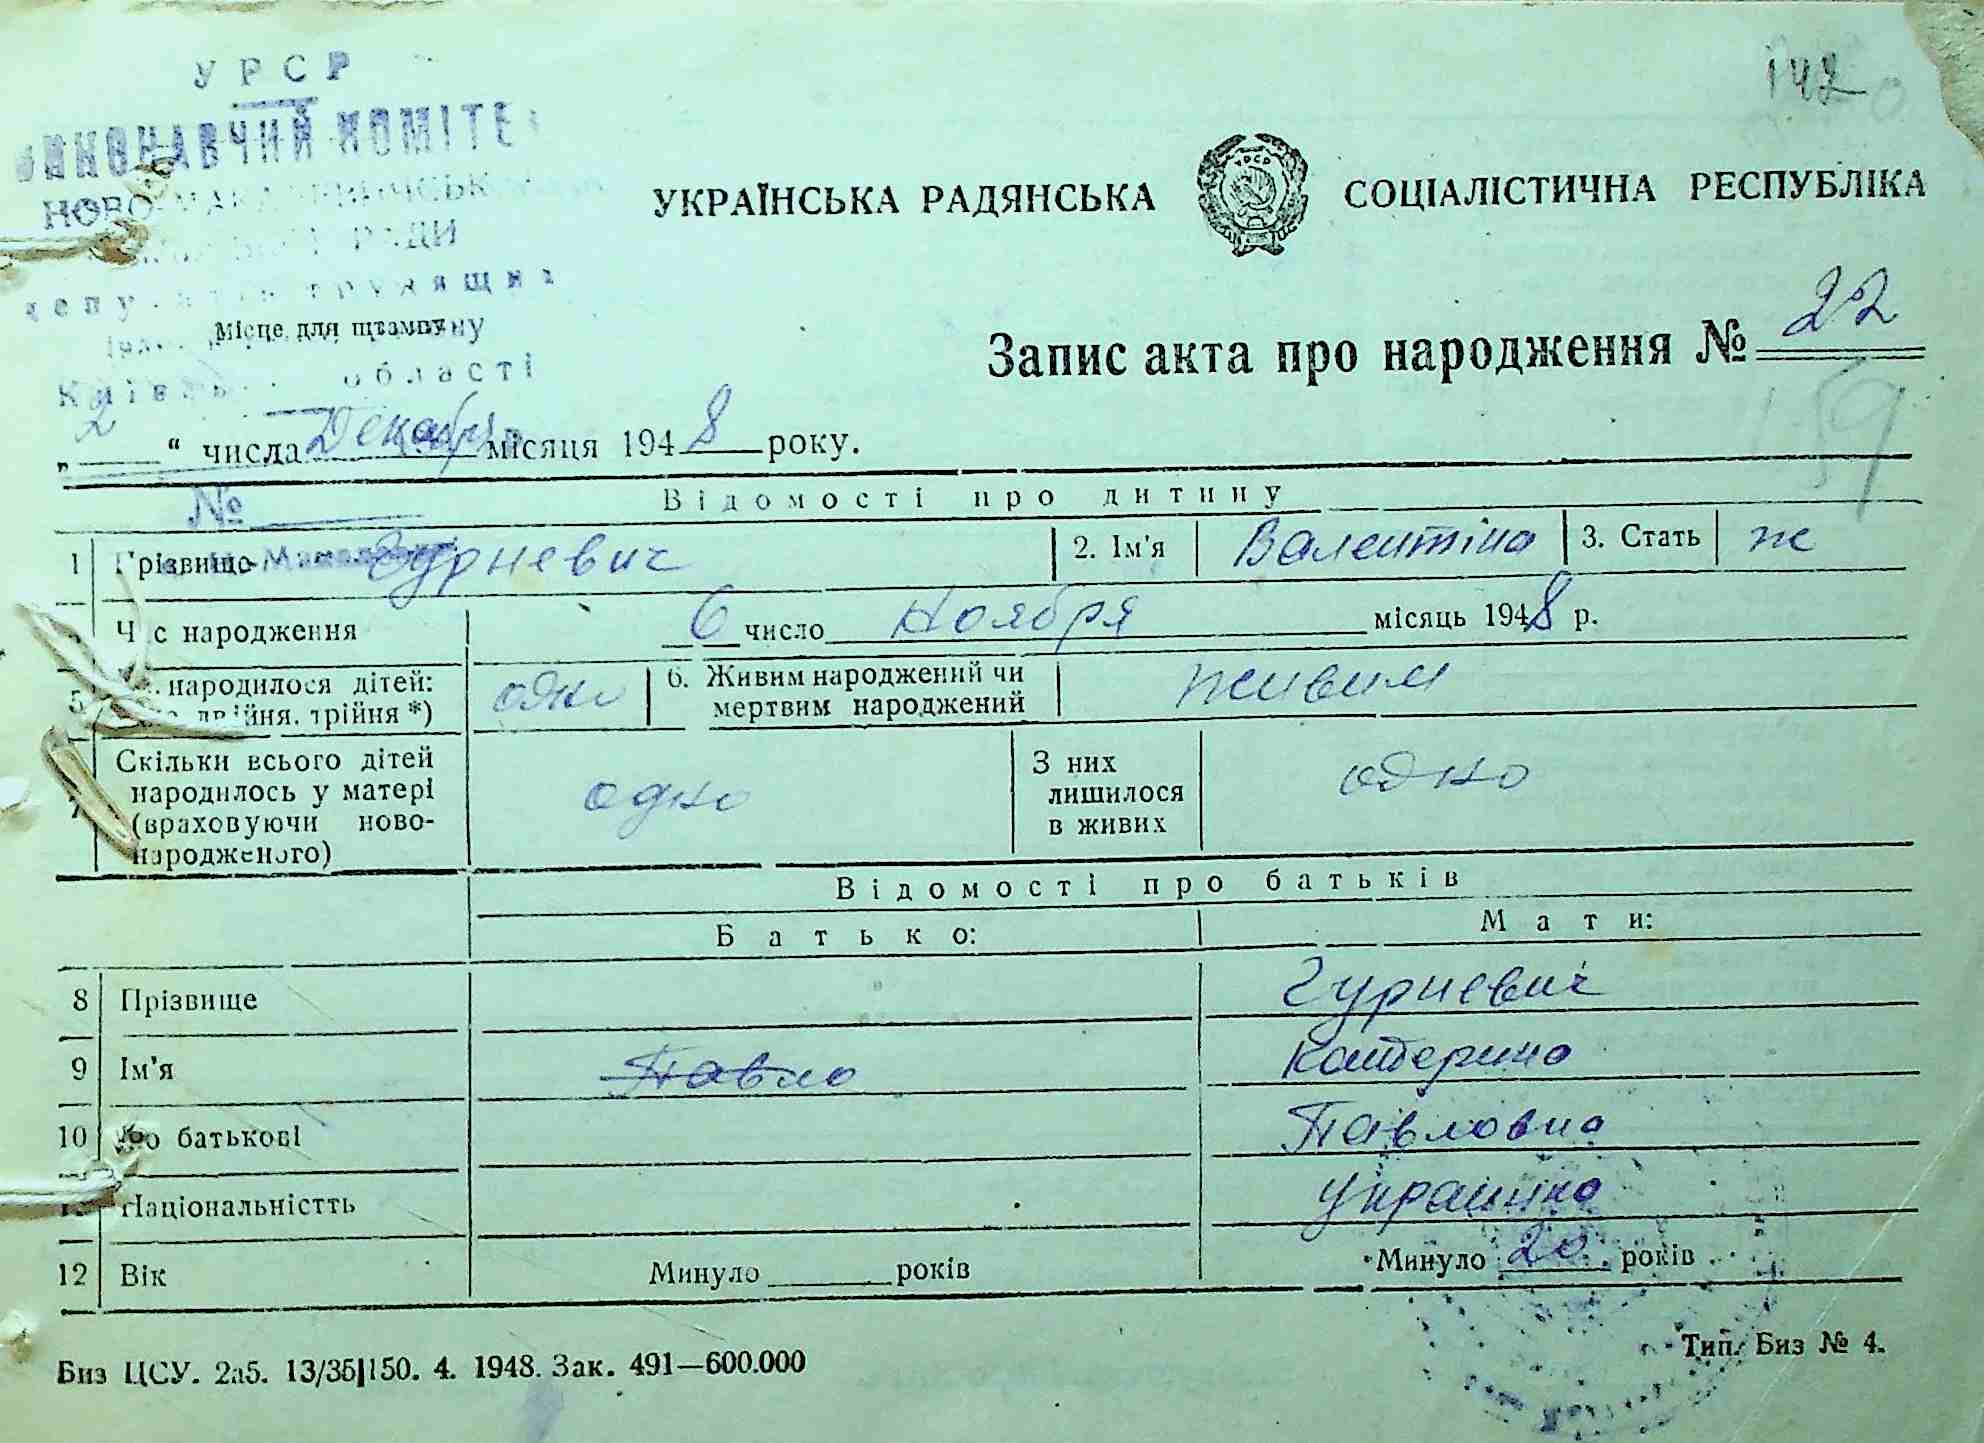 УРСР
142
ВИКОНАВЧИЙ КОМІТЕ
УКРАЇНСЬКА РАДЯНСЬКА СОЦІАЛІСТИЧНА РЕСПУБЛІКА
РАДИ
Місце для штампу
Запис акта про народження № 22
області
„ 2 “ числа Декабря місяця 1948 року.
159
№
Відомості про дитину
1 Прізвище Гурневич 2. Ім'я Валентіна 3. Стать ж
Час народження 6 число Ноября місяць 1948 р.
5 народилося дітей: двійня, трійня *) одно 6. Живим народжений чи мертвим народжений живим
7 Скільки всього дітей народилось у матері (враховуючи ново-народженого) одно З них лишилося в живих одно
Відомості про батьків
Батько: Мати:
8 Прізвище Гурневич
9 Ім'я Павло Катерина
10 По батькові Павловна
Національністть украинка
12 Вік Минуло ____ років Минуло 20 років
Биз ЦСУ. 2а5. 13/35|150. 4. 1948. Зак. 491—600.000 Тип. Биз № 4.